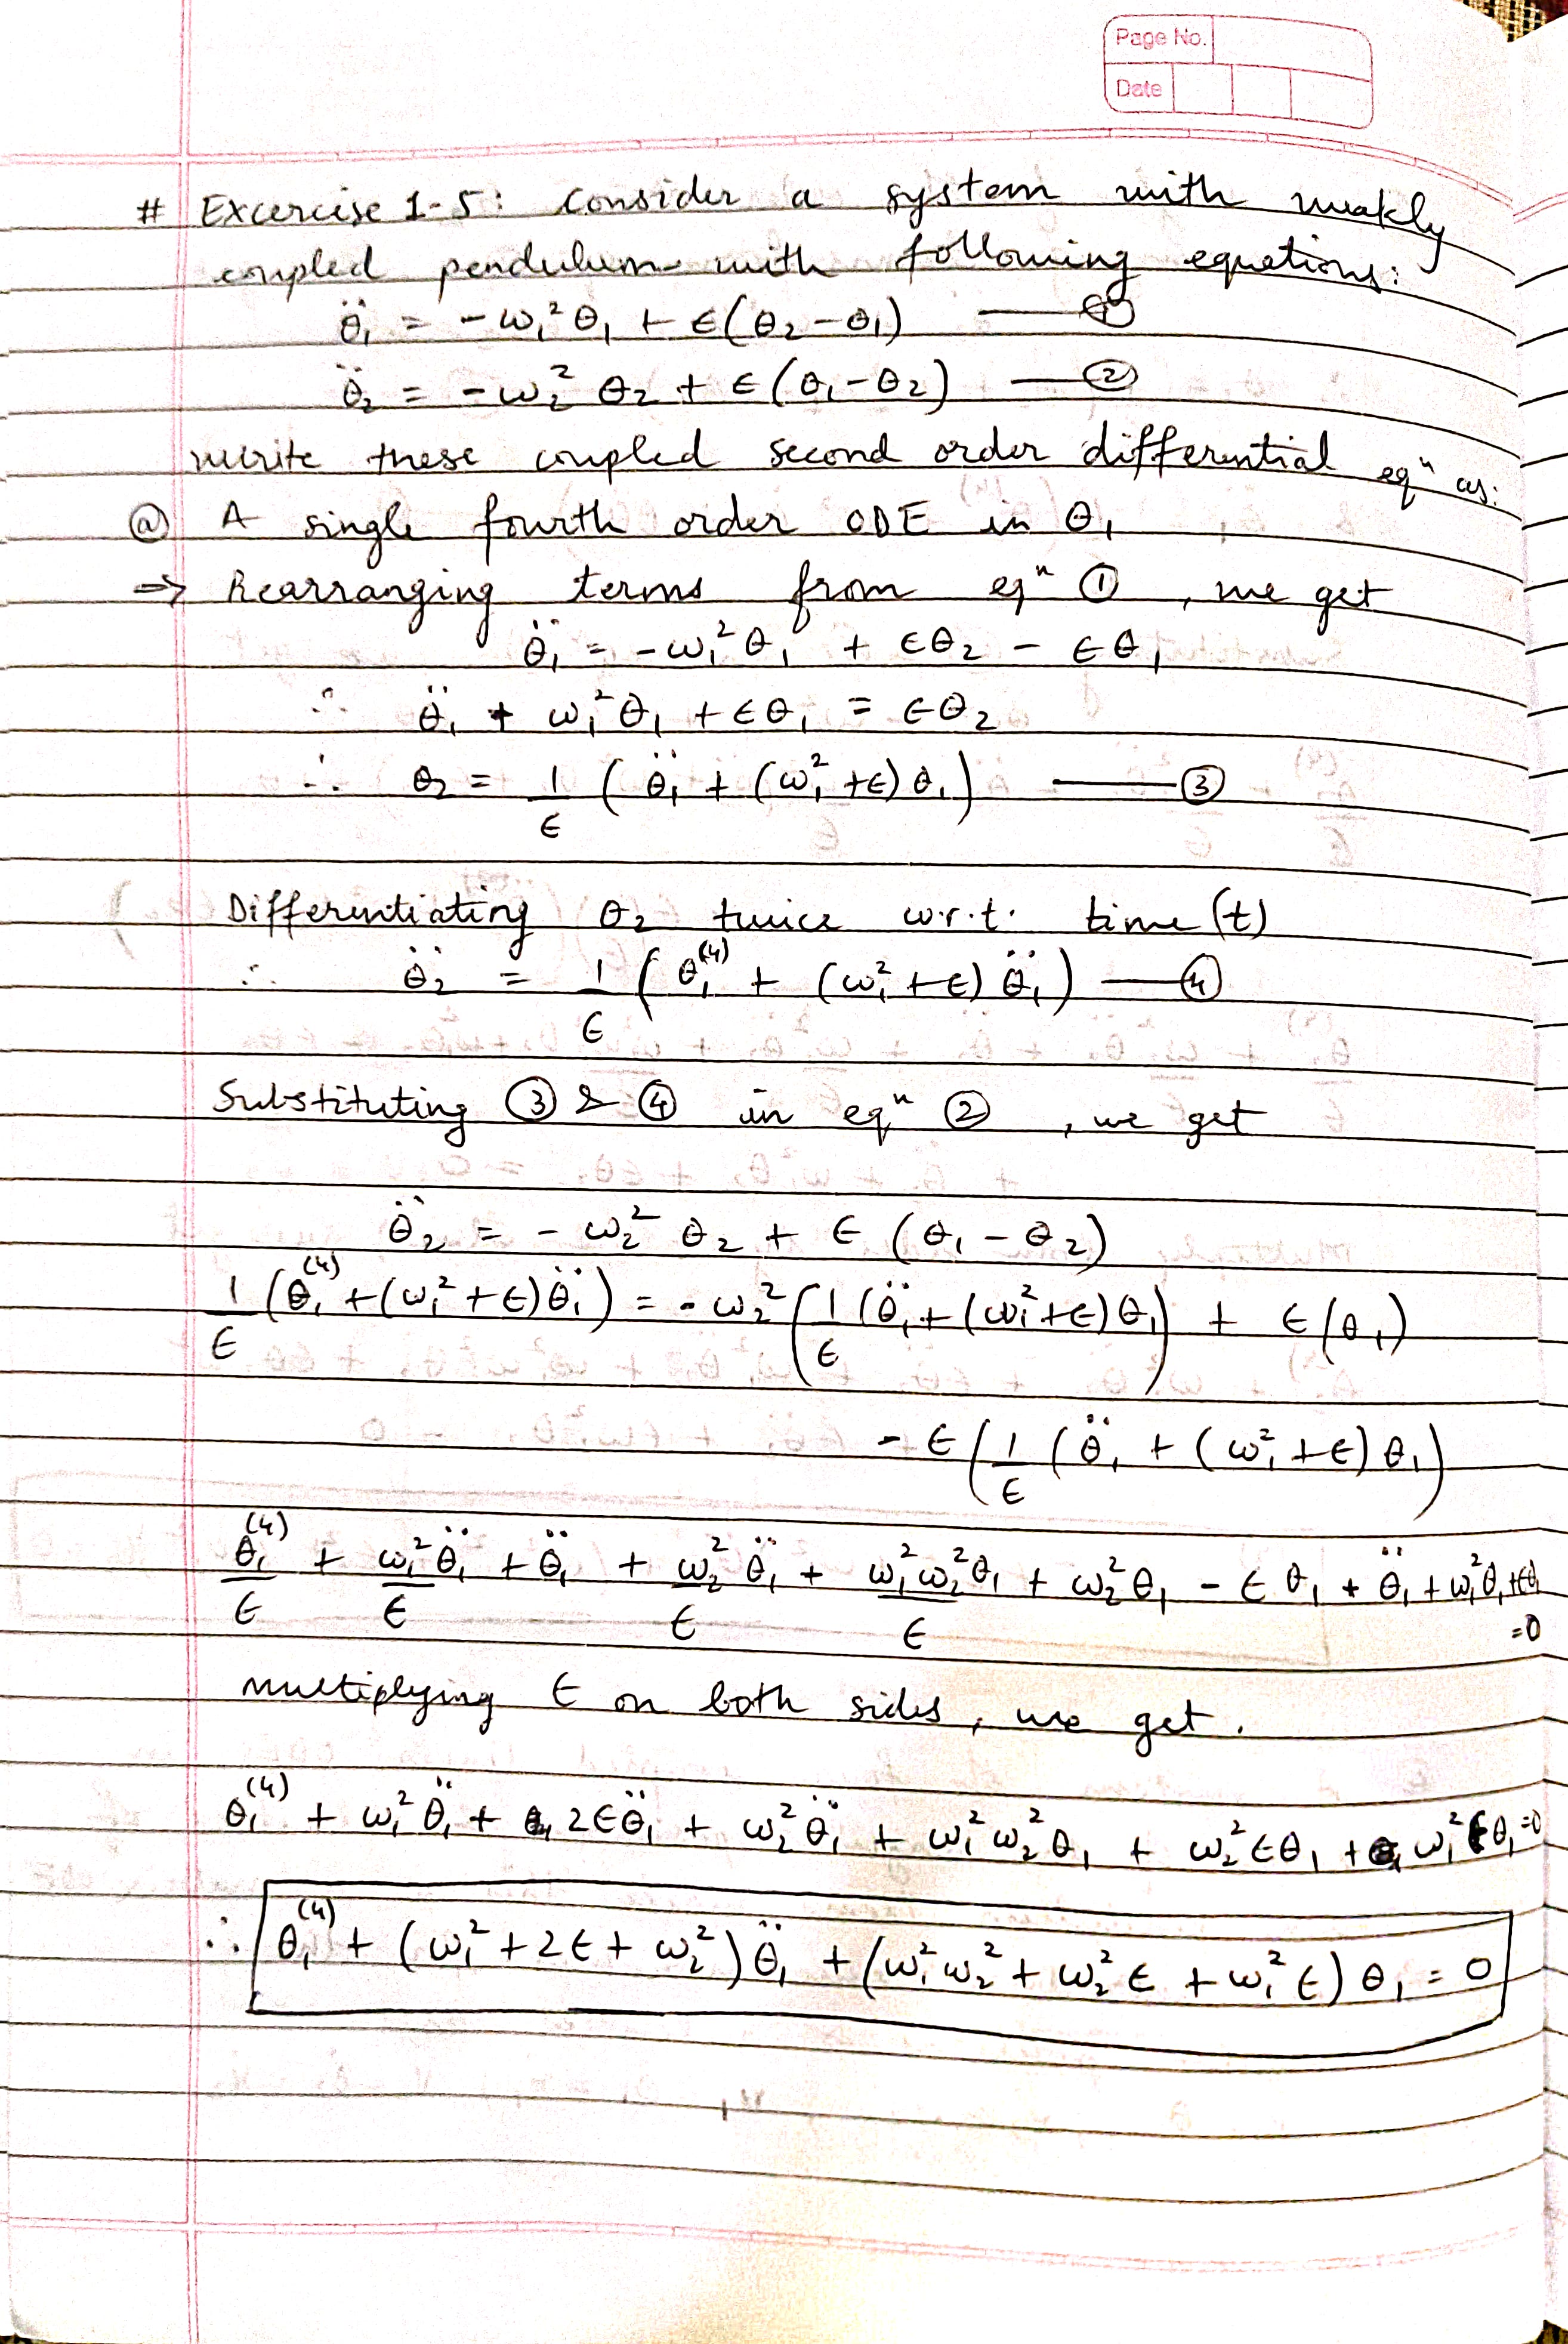 Page No.
Date
# Excercise 1-5: Consider a system with weakly
coupled pendulum with following equations:
θ̈₁ = -ω₁²θ₁ + ϵ(θ₂-θ₁) —— ①
θ̈₂ = -ω₂² θ₂ + ϵ(θ₁-θ₂) —— ②
write these coupled second order differential eqⁿ as:
ⓐ A single fourth order ODE in θ₁
⇒ Rearranging terms from eqⁿ ①, we get
θ̈₁ = -ω₁²θ₁ + ϵθ₂ - ϵθ₁
∴ θ̈₁ + ω₁²θ₁ + ϵθ₁ = ϵθ₂
∴ θ₂ = 1/ϵ (θ̈₁ + (ω₁²+ϵ)θ₁) —— ③
Differentiating θ₂ twice w.r.t. time (t)
∴ θ̈₂ = 1/ϵ (θ₁⁽⁴⁾ + (ω₁²+ϵ)θ̈₁) —— ④
Substituting ③ & ④ in eqⁿ ②, we get
θ̈₂ = - ω₂² θ₂ + ϵ (θ₁ - θ₂)
1/ϵ (θ₁⁽⁴⁾ + (ω₁²+ϵ)θ̈₁) = -ω₂² (1/ϵ (θ̈₁ + (ω₁²+ϵ)θ₁) + ϵ(θ₁)
- ϵ(1/ϵ (θ̈₁ + (ω₁²+ϵ)θ₁)
θ₁⁽⁴⁾/ϵ + ω₁²θ̈₁/ϵ + θ̈₁ + ω₂²θ̈₁/ϵ + ω₁²ω₂²θ₁/ϵ + ω₂²θ₁ - ϵθ₁ + θ̈₁ + ω₁²θ₁ + ϵθ₁
=0
multiplying ϵ on both sides, we get.
θ₁⁽⁴⁾ + ω₁²θ̈₁ + 2ϵθ̈₁ + ω₂²θ̈₁ + ω₁²ω₂²θ₁ + ω₂²ϵθ₁ + ω₁²ϵθ₁ =0
∴ θ₁⁽⁴⁾ + (ω₁²+2ϵ+ω₂²)θ̈₁ + (ω₁²ω₂² + ω₂²ϵ + ω₁²ϵ)θ₁ = 0